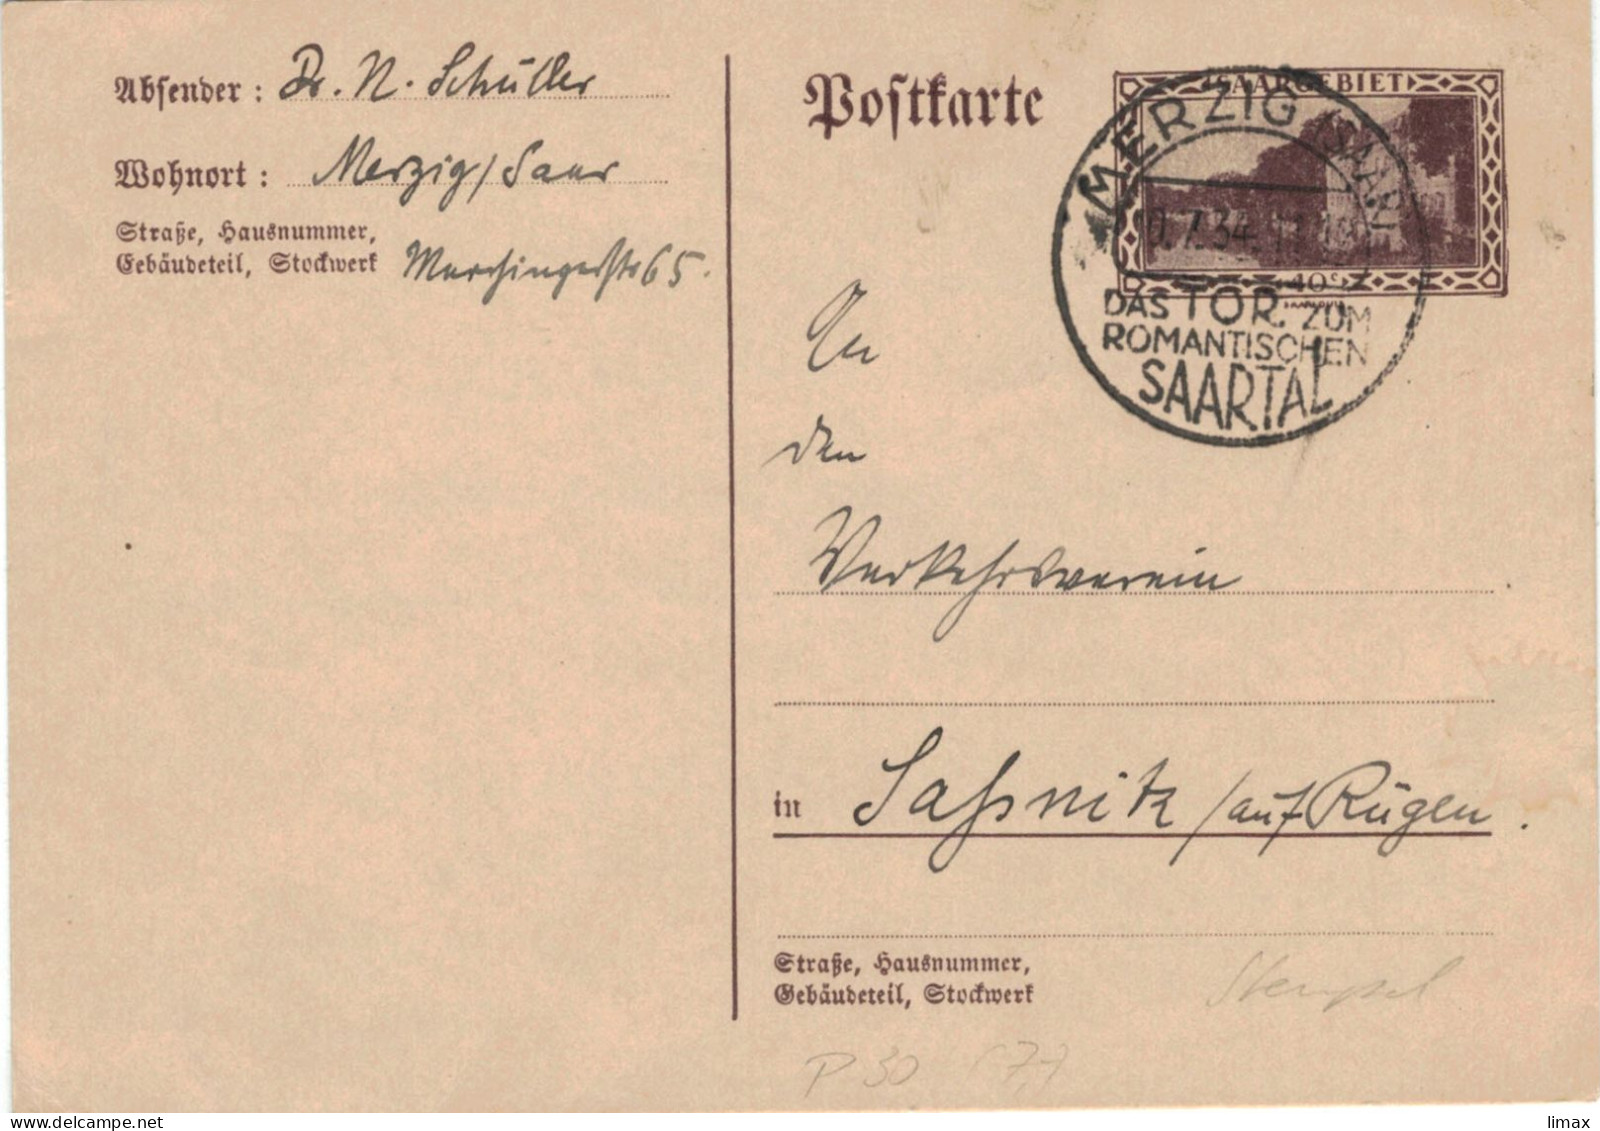 Absender: Dr. N. Schüller
Wohnort: Merzig/Saar
Straße, Hausnummer,
Gebäudeteil, Stockwerk
65.
Postkarte
SAARGEBIET
40 c
MERZIG (SAAR)
7.34.
DAS TOR ZUM
ROMANTISCHEN
SAARTAL
An
den
Verkehrsverein
in Saßnitz / auf Rügen.
Straße, Hausnummer,
Gebäudeteil, Stockwerk
Stempel
P 30
limax